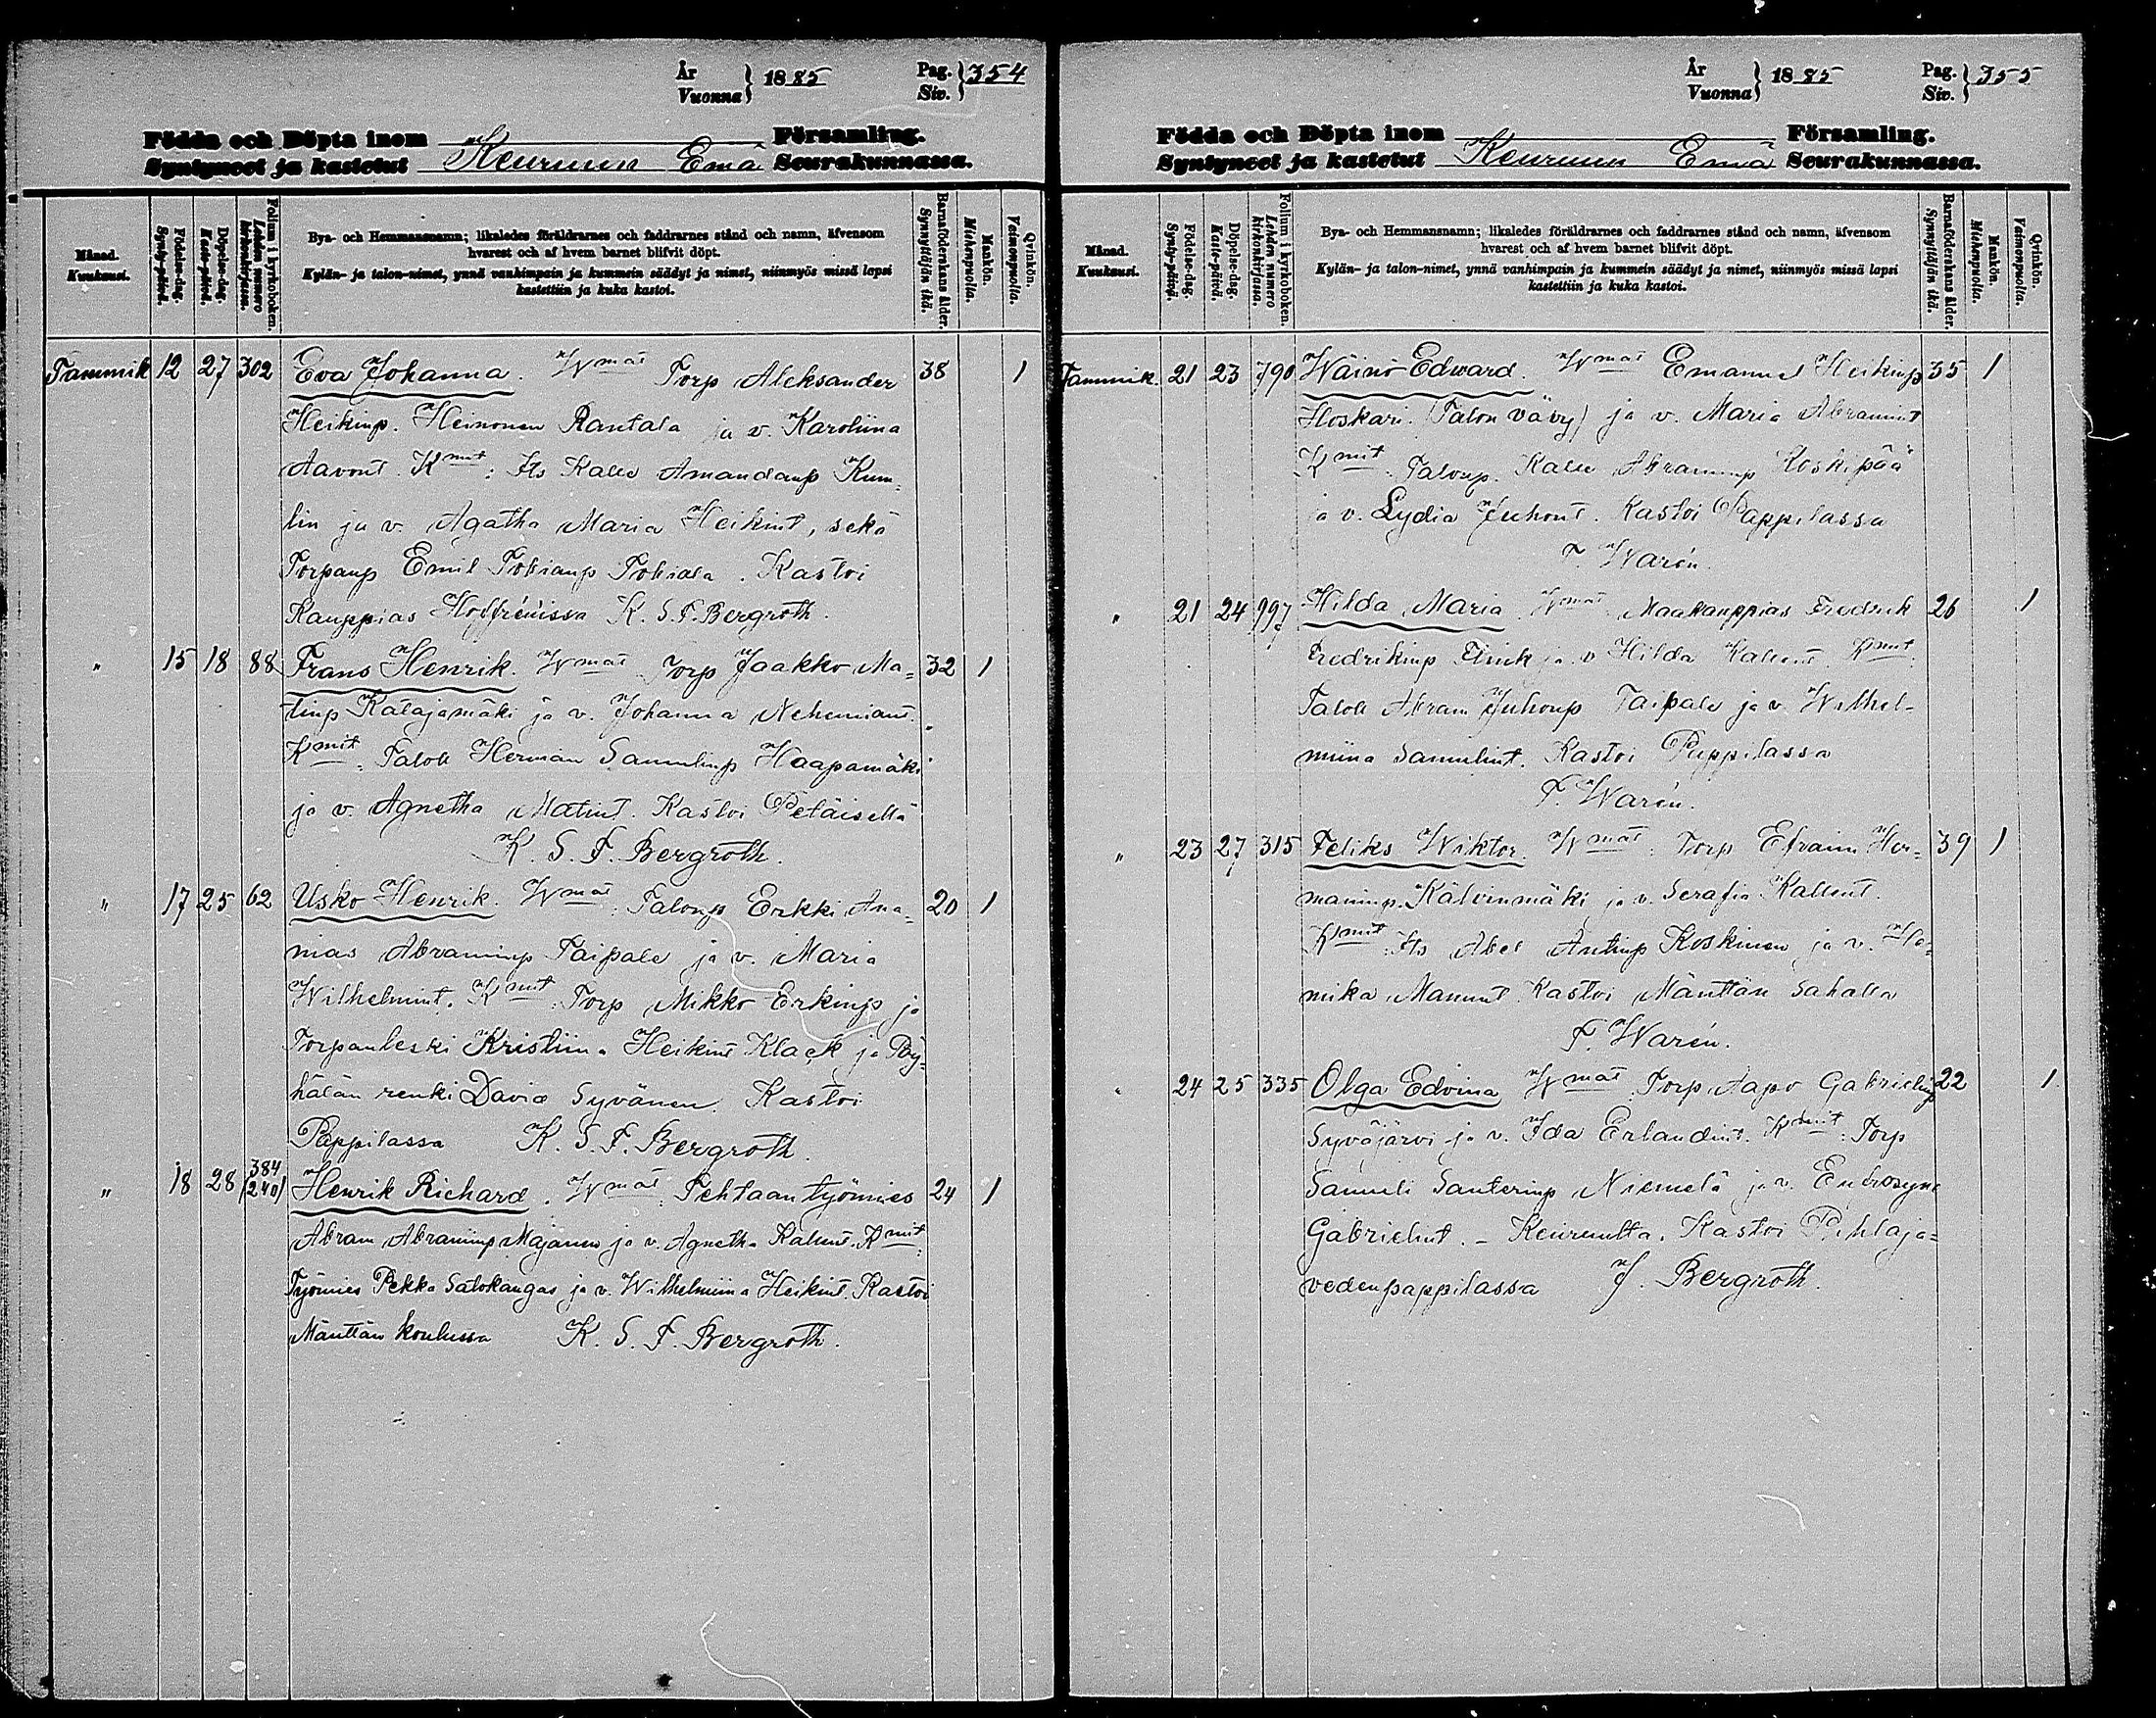 År
Vuonna } 1885
Pag.
Siv. } 354
Födda och Döpta inom Församling.
Syntyneet ja kastetut Keuruun Emä Seurakunnassa.
Månad.
Kuukausi.
Födelse-dag.
Synty-päivä.
Döpelse-dag.
Kaste-päivä.
Folium i kyrkoboken.
Lehden numero
kirkonkirjassa.
Bya- och Hemmansnamn; likaledes föräldrarnes och faddrarnes stånd och namn, äfvensom
hvarest och af hvem barnet blifvit döpt.
Kylän- ja talon-nimet, ynnä vanhimpain ja kummein säädyt ja nimet, niinmyös missä lapsi
kastettiin ja kuka kastoi.
Barnaföderskans ålder.
Synnyttäjän ikä.
Mankön.
Miehenpuolia.
Qvinkön.
Vaimonpuolia.
Tammik 12 27 302 Eva Johanna. Wmat Torp Aleksander 38 1
Heikinp. Heinonen Rantala ja v. Karoliina
Aavont. Kmit: Its Kalle Amandanp Kum-
lin ja v. Agatha Maria Heikint, sekä
Torpanp Emil Tobianp Tobiala. Kastoi
Kauppias Hoffrénissa K. S. F. Bergroth.
" 15 18 88 Frans Henrik. Wmat Torp Jaakko Ma= 32 1
tinp Kalajamäki ja v. Johanna Nehemiant.
Kmit: Talok Herman Samulinp Haapamäki
ja v. Agnetha Matint. Kastoi Petäisellä
K. S. F. Bergroth.
" 17 25 62 Usko Henrik. Wmat: Talonp Erkki Ana= 20 1
nias Abraminp Taipale ja v. Maria
Wilhelmint. Kmit: Torp Mikko Erkinp ja
Torpanleski Kristiina Heikint Klack ja Pöy=
hälän renki David Syvänen. Kastoi
Pappilassa K. S. F. Bergroth.
" 18 28 384 (240) Henrik Richard. Wmat: Tehtaan työmies 24 1
Abram Abraminp Majanen ja v. Agnetha Kallent. Kmit:
Työmies Pekka Salokangas ja v. Wilhelmiina Heikint. Kastoi
Mänttän koulussa K. S. F. Bergroth.
År
Vuonna } 1885
Pag.
Siv. } 355
Födda och Döpta inom Församling.
Syntyneet ja kastetut Keuruun Emä Seurakunnassa.
Månad.
Kuukausi.
Födelse-dag.
Synty-päivä.
Döpelse-dag.
Kaste-päivä.
Folium i kyrkoboken.
Lehden numero
kirkonkirjassa.
Bya- och Hemmansnamn; likaledes föräldrarnes och faddrarnes stånd och namn, äfvensom
hvarest och af hvem barnet blifvit döpt.
Kylän- ja talon-nimet, ynnä vanhimpain ja kummein säädyt ja nimet, niinmyös missä lapsi
kastettiin ja kuka kastoi.
Barnaföderskans ålder.
Synnyttäjän ikä.
Mankön.
Miehenpuolia.
Qvinkön.
Vaimonpuolia.
Tammik. 21 23 790 Wäinö Edward. Wmat Emanuel Heikinp 35 1
Hoskari. (Talon vävy) ja v. Maria Abramint
Kmit: Talonp. Kalle Abraminp Koskipää
ja v. Lydia Juhont. Kastoi Pappilassa
F. Warén.
" 21 24 997 Hilda Maria. Wmat Maakauppias Fredrik 26 1
Fredrikinp Flink ja v Hilda Kallent. Kmit:
Talok Abram Juhonp Taipale ja v. Wilhel-
miina Samulint. Kastoi Pappilassa
F. Warén.
" 23 27 315 Feliks Wiktor. Wmat: Torp Efraim Her= 39 1
maninp. Kälvinmäki ja v. Serafia Kallent.
Kmit: Its Abel Antinp Koskinen ja v. He=
mika Manunt Kastoi Mänttän Sahalla
F. Warén.
" 24 25 335 Olga Edvina Wmat: Torp. Aapo Gabrielinp 22 1
Syväjärvi ja v. Ida Erlandint. Kmit: Torp
Samuli Santerinp Niemelä ja v. Eufrosyne
Gabrielint. - Keuruulta. Kastoi Pihlaja=
vedenpappilassa J. Bergroth.